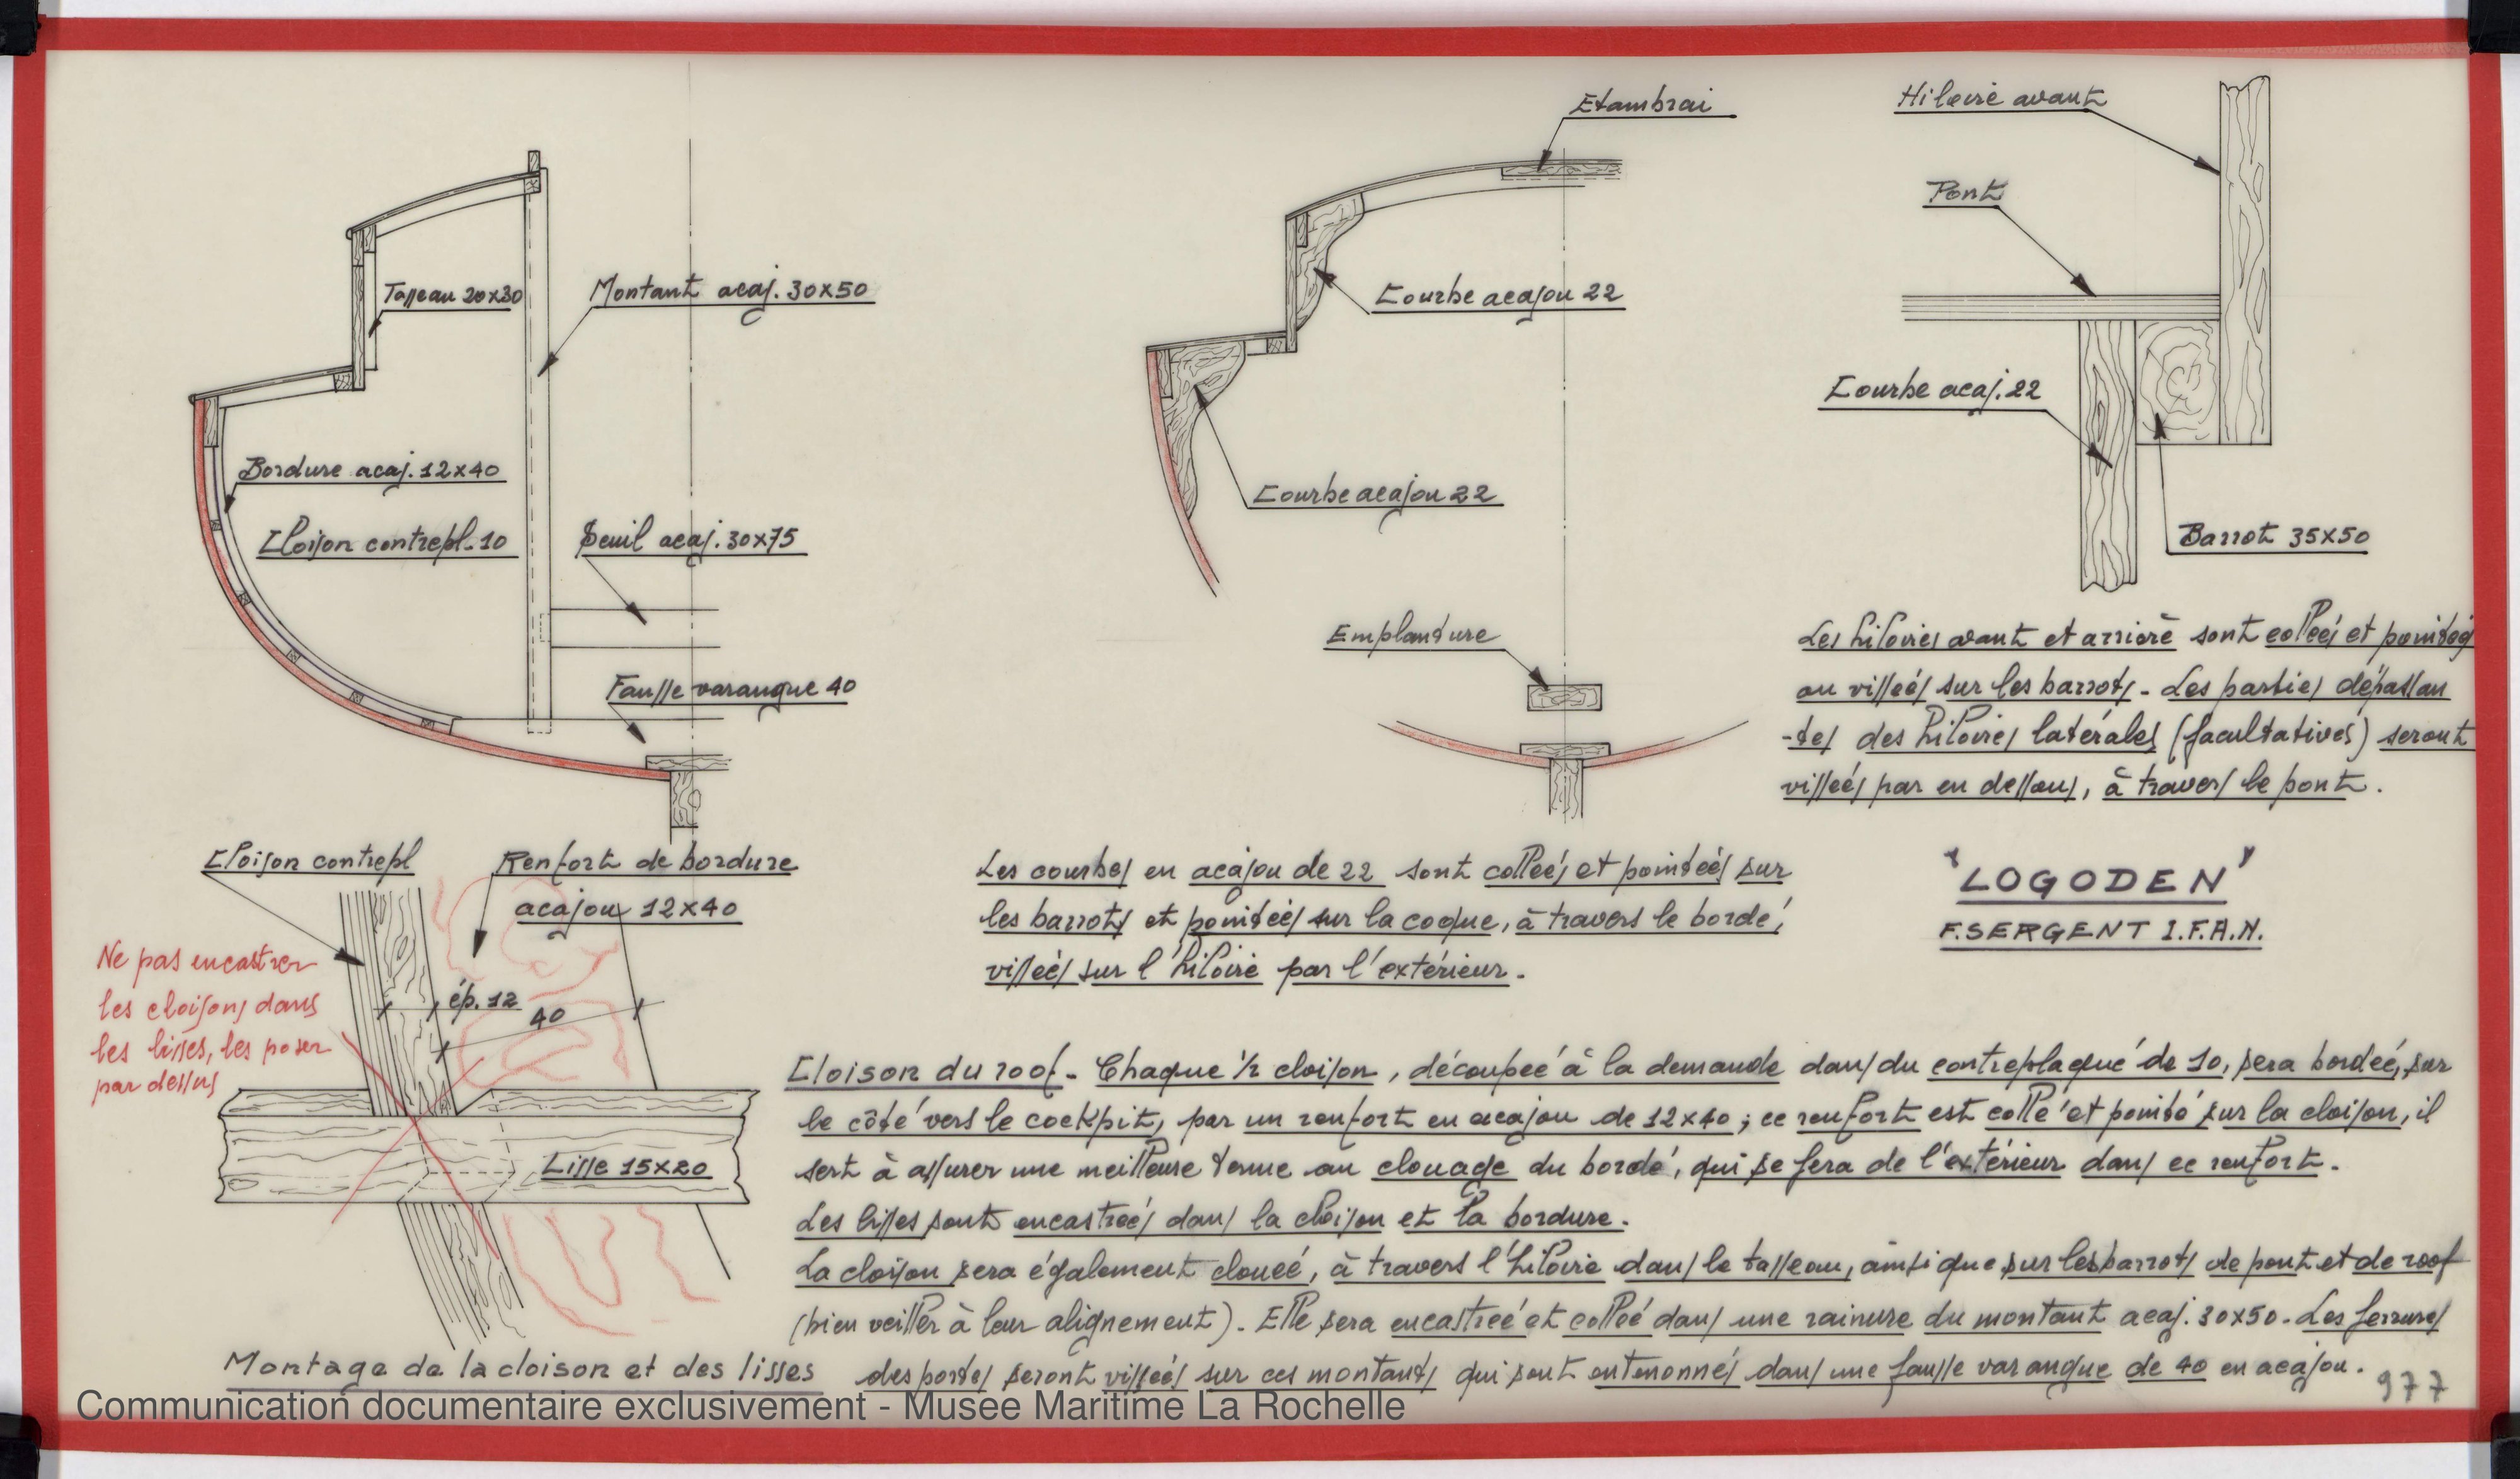 Etambrai
Hiloire avant
Pont
Tasseau 20x30
Montant acaj. 30x50
Courbe acajou 22
Courbe acaj. 22
Bordure acaj. 12x40
Courbe acajou 22
Cloison contrepl. 10
Seuil acaj. 30x75
Barrot 35x50
Emplanture
Fausse varangue 40
Les hiloires avant et arrière sont collées et pointées
ou vissées sur les barrots - Les parties dépassan
-tes des hiloires latérales (facultatives) seront
vissées par en dessous, à travers le pont.
"LOGODEN"
F. SERGENT I.F.A.N.
Cloison contrepl
Renfort de bordure
acajou 12x40
Ne pas encastrer
les cloisons dans
les lisses, les poser
par dessus
ép. 12
40
Lisse 15x20
Montage de la cloison et des lisses
Les courbes en acajou de 22 sont collées et pointées sur
les barrots et pointées sur la coque, à travers le bordé,
vissées sur l'hiloire par l'extérieur.
Cloison du roof - Chaque 1/2 cloison, découpée à la demande dans du contreplaqué de 10, sera bordée, sur
le côté vers le cockpit, par un renfort en acajou de 12x40 ; ce renfort est collé et pointé sur la cloison, il
sert à assurer une meilleure tenue au clouage du bordé, qui se fera de l'extérieur dans ce renfort.
Les lisses sont encastrées dans la cloison et la bordure.
La cloison sera également clouée, à travers l'hiloire dans le tasseau, ainsi que sur les barrots de pont et de roof
(bien veiller à leur alignement). Elle sera encastrée et collée dans une rainure du montant acaj. 30x50. Les ferrures
des portes seront vissées sur ces montants qui sont entenonnés dans une fausse varangue de 40 en acajou.
977
Communication documentaire exclusivement - Musee Maritime La Rochelle